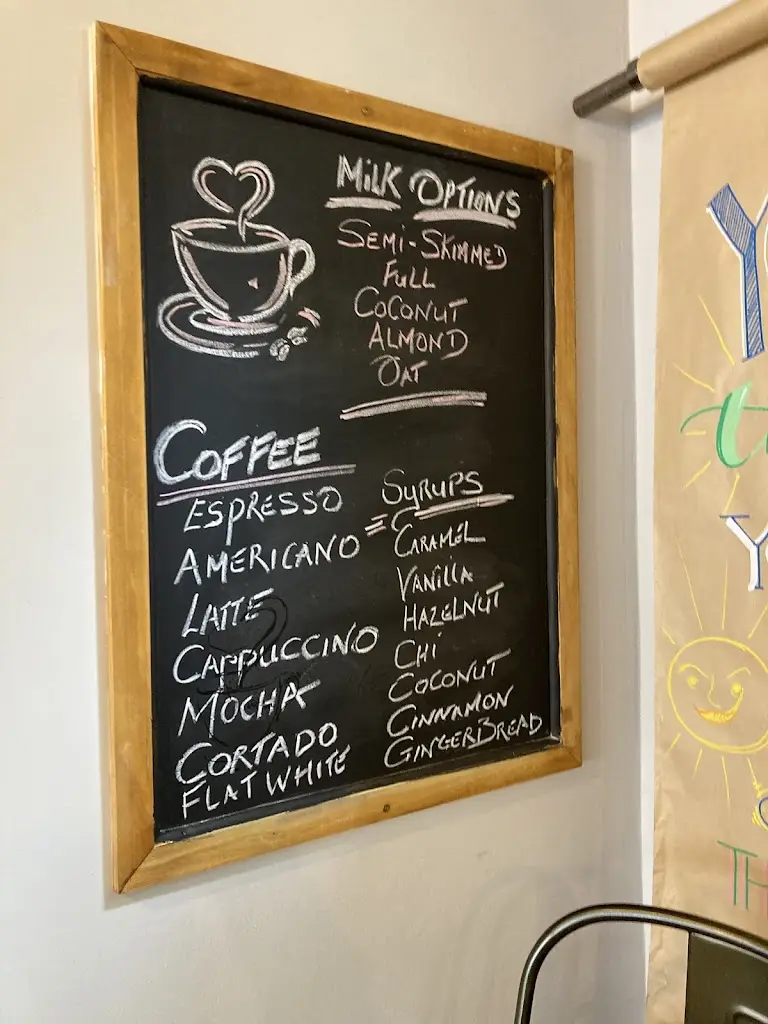 MiLK OPTIONS
SEMI-SKIMMED
FULL
COCONUT
ALMOND
OAT
COFFEE
ESPRESSO
AMERICANO
LATTE
CAPPUCCINO
MOCHA
CORTADO
FLAT WHITE
SYRUPS
CARAMEL
VANILLA
HAZELNUT
CHI
COCONUT
CINNAMON
GINGERBREAD